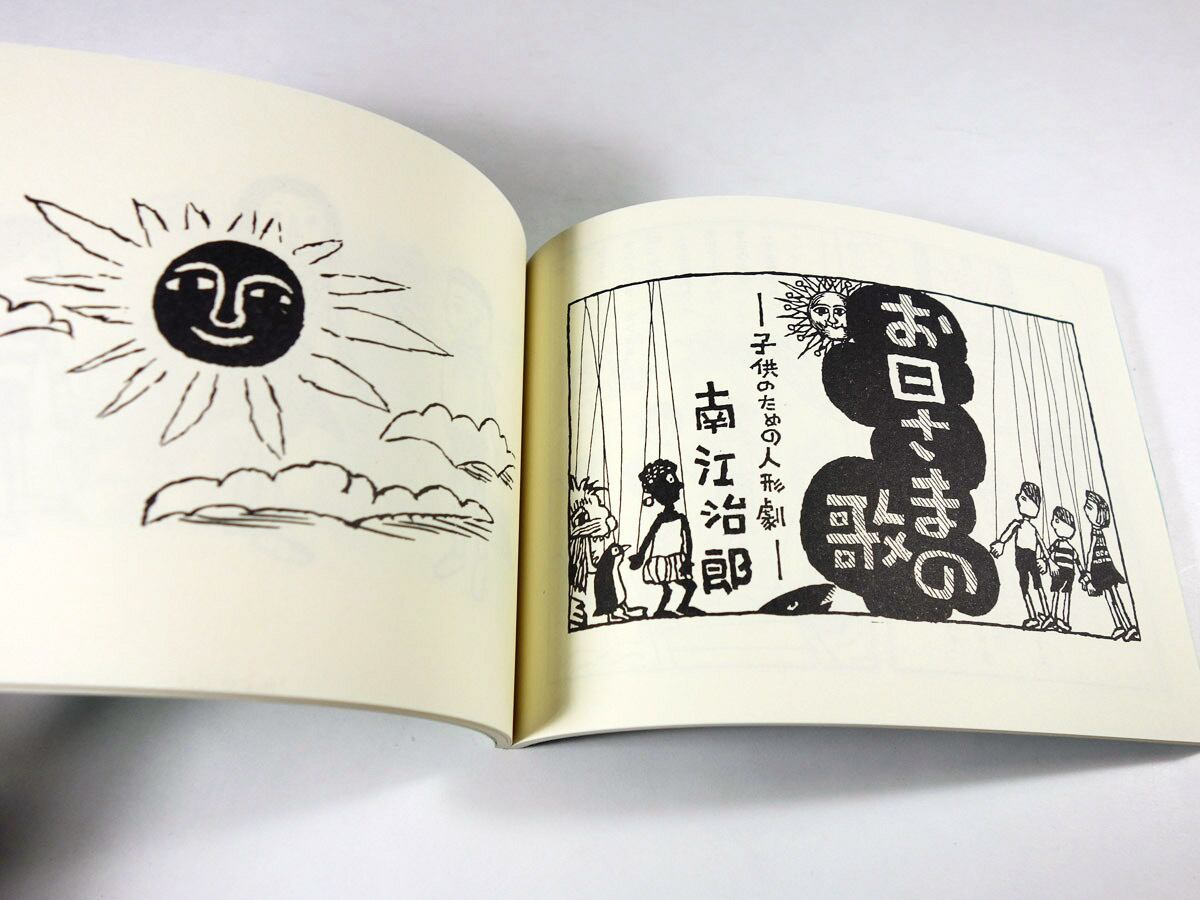 お日さまの
歌
―子供のための人形劇―
南江治郎